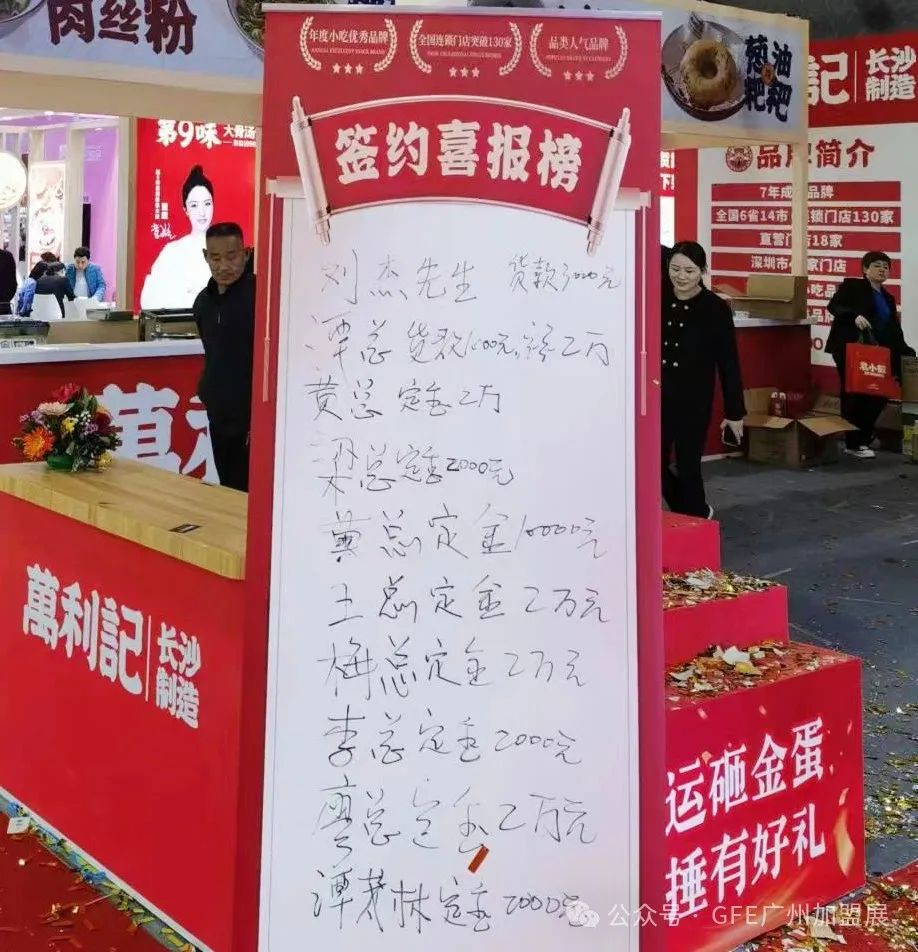 肉丝粉
年度小吃优秀品牌
全国连锁门店突破130家
品类人气品牌
签约喜报榜
刘杰先生 货款3000元
谭总 货款1000元, 2万
黄总 定金2万
梁总定金2000元
黄总定金10000元
王总定金2万元
梅总定金2万元
李总定金2000元
廖总定金2万元
谭茂林定金2000元
第9味 大骨汤
葱油粑粑
記 长沙制造
品牌简介
7年成 品牌
全国6省14市 连锁门店130家
直营门店18家
深圳市 家门店
萬利
萬利記 长沙制造
运砸金蛋
捶有好礼
公众号 · GFE广州加盟展